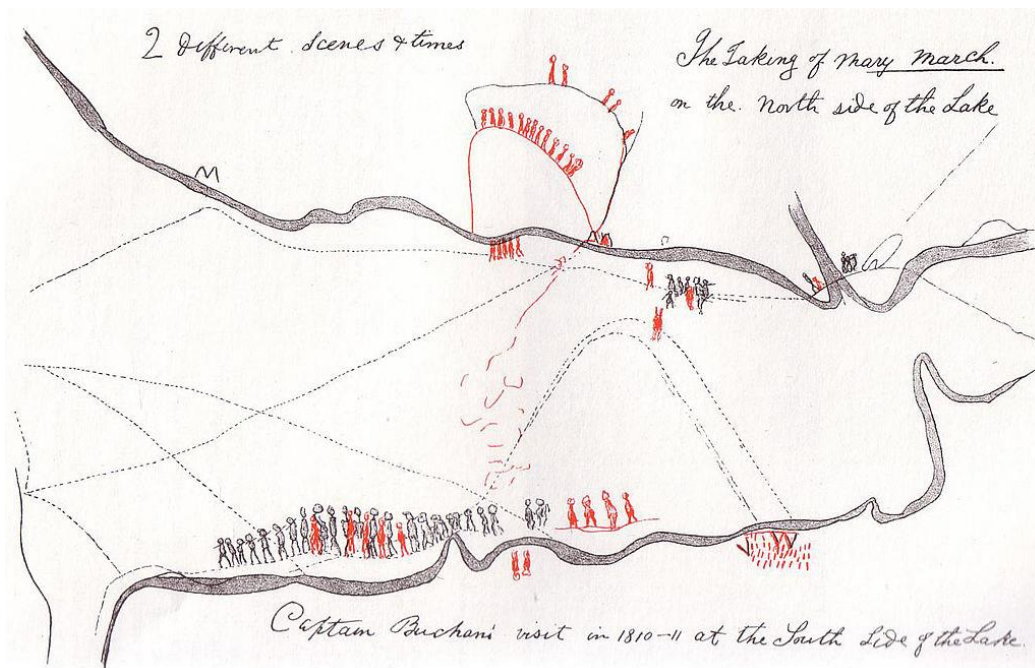 2 Different Scenes & times
The Taking of Mary March.
on the North side of the Lake
Captain Buchans visit in 1810-11 at the South Side of the Lake